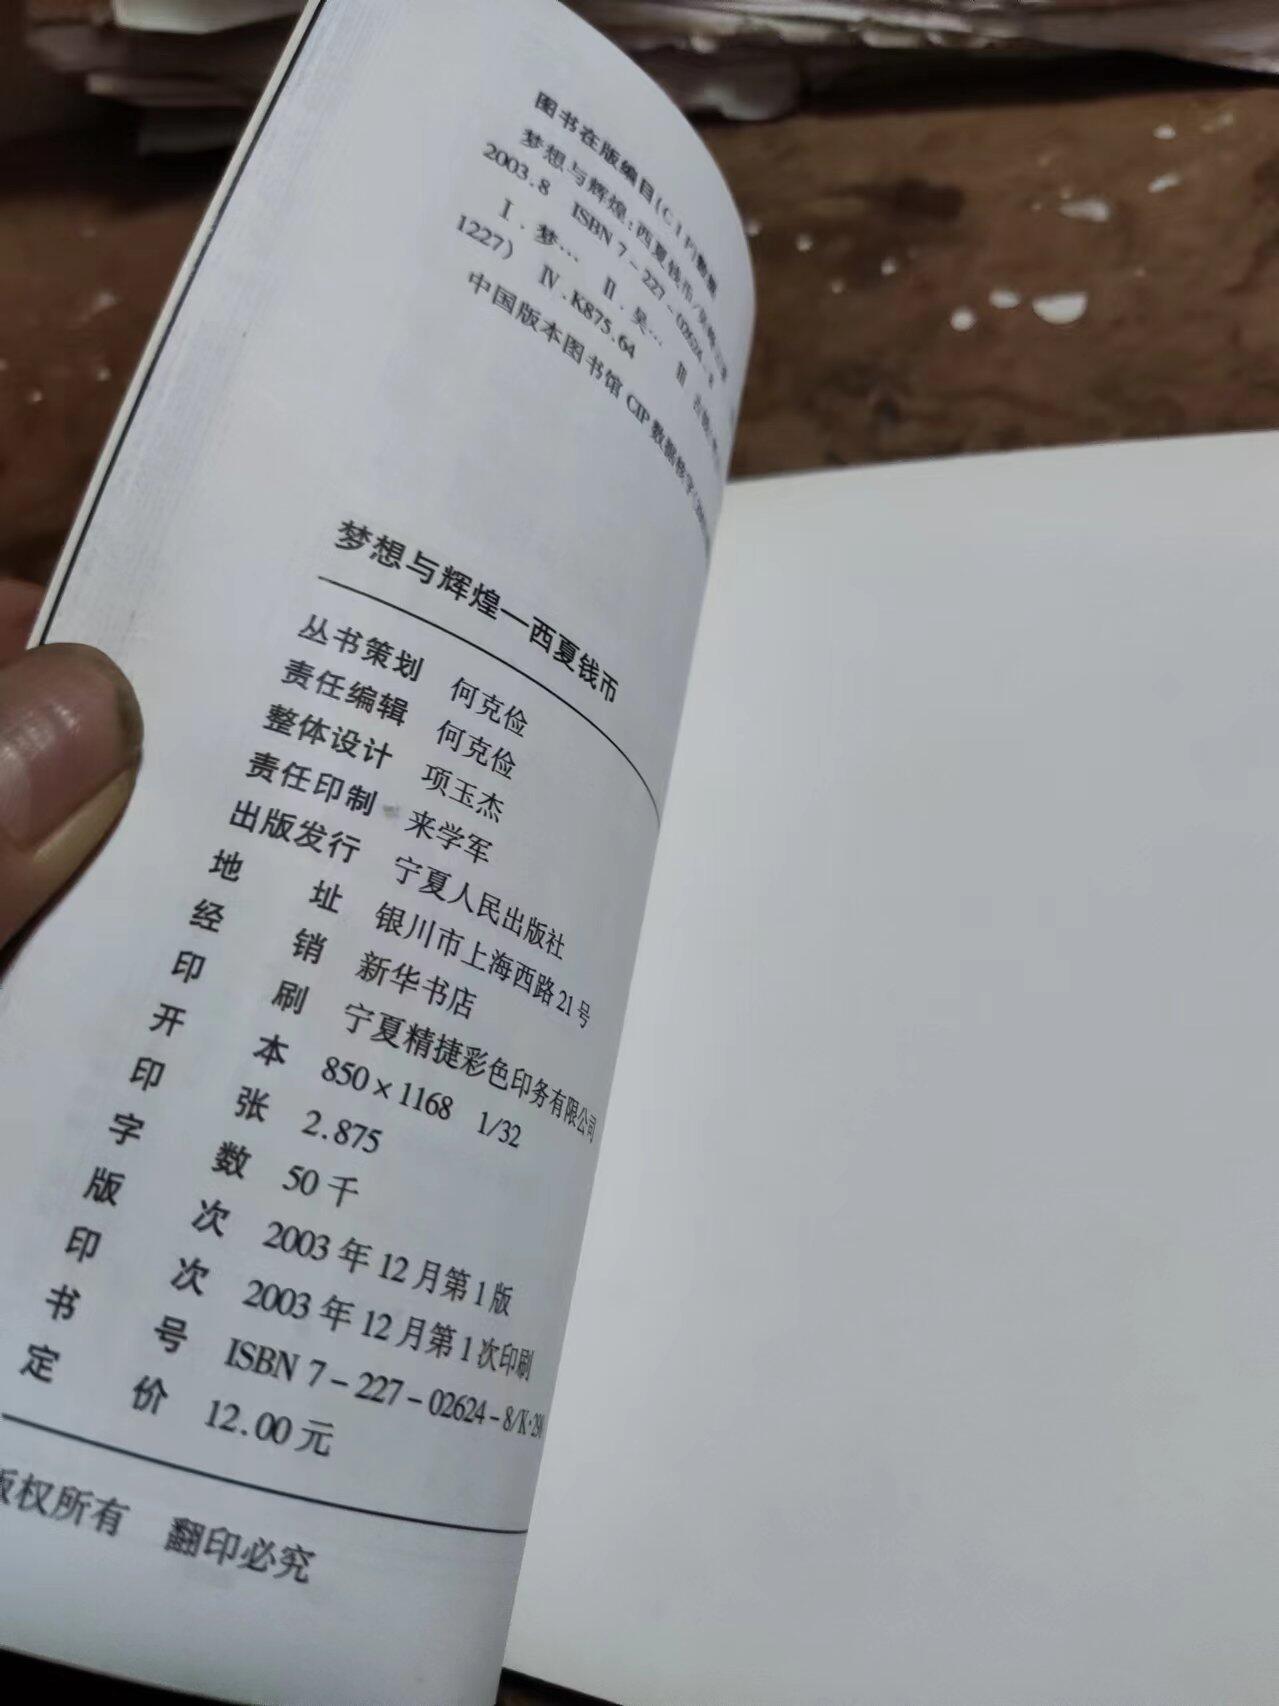 图书在版编目(CIP)数据
梦想与辉煌:西夏钱币/吴
2003.8 ISBN 7-227-02624-8
Ⅰ.梦… Ⅱ.吴… Ⅲ
1227) Ⅳ.K875.64
中国版本图书馆 CIP 数据核字
梦想与辉煌—西夏钱币
丛书策划 何克俭
责任编辑 何克俭
整体设计 项玉杰
责任印制 来学军
出版发行 宁夏人民出版社
地 址 银川市上海西路21号
经 销 新华书店
印 刷 宁夏精捷彩色印务有限公司
开 本 850×1168 1/32
印 张 2.875
字 数 50千
版 次 2003年12月第1版
印 次 2003年12月第1次印刷
书 号 ISBN 7-227-02624-8/K·29
定 价 12.00元
版权所有 翻印必究